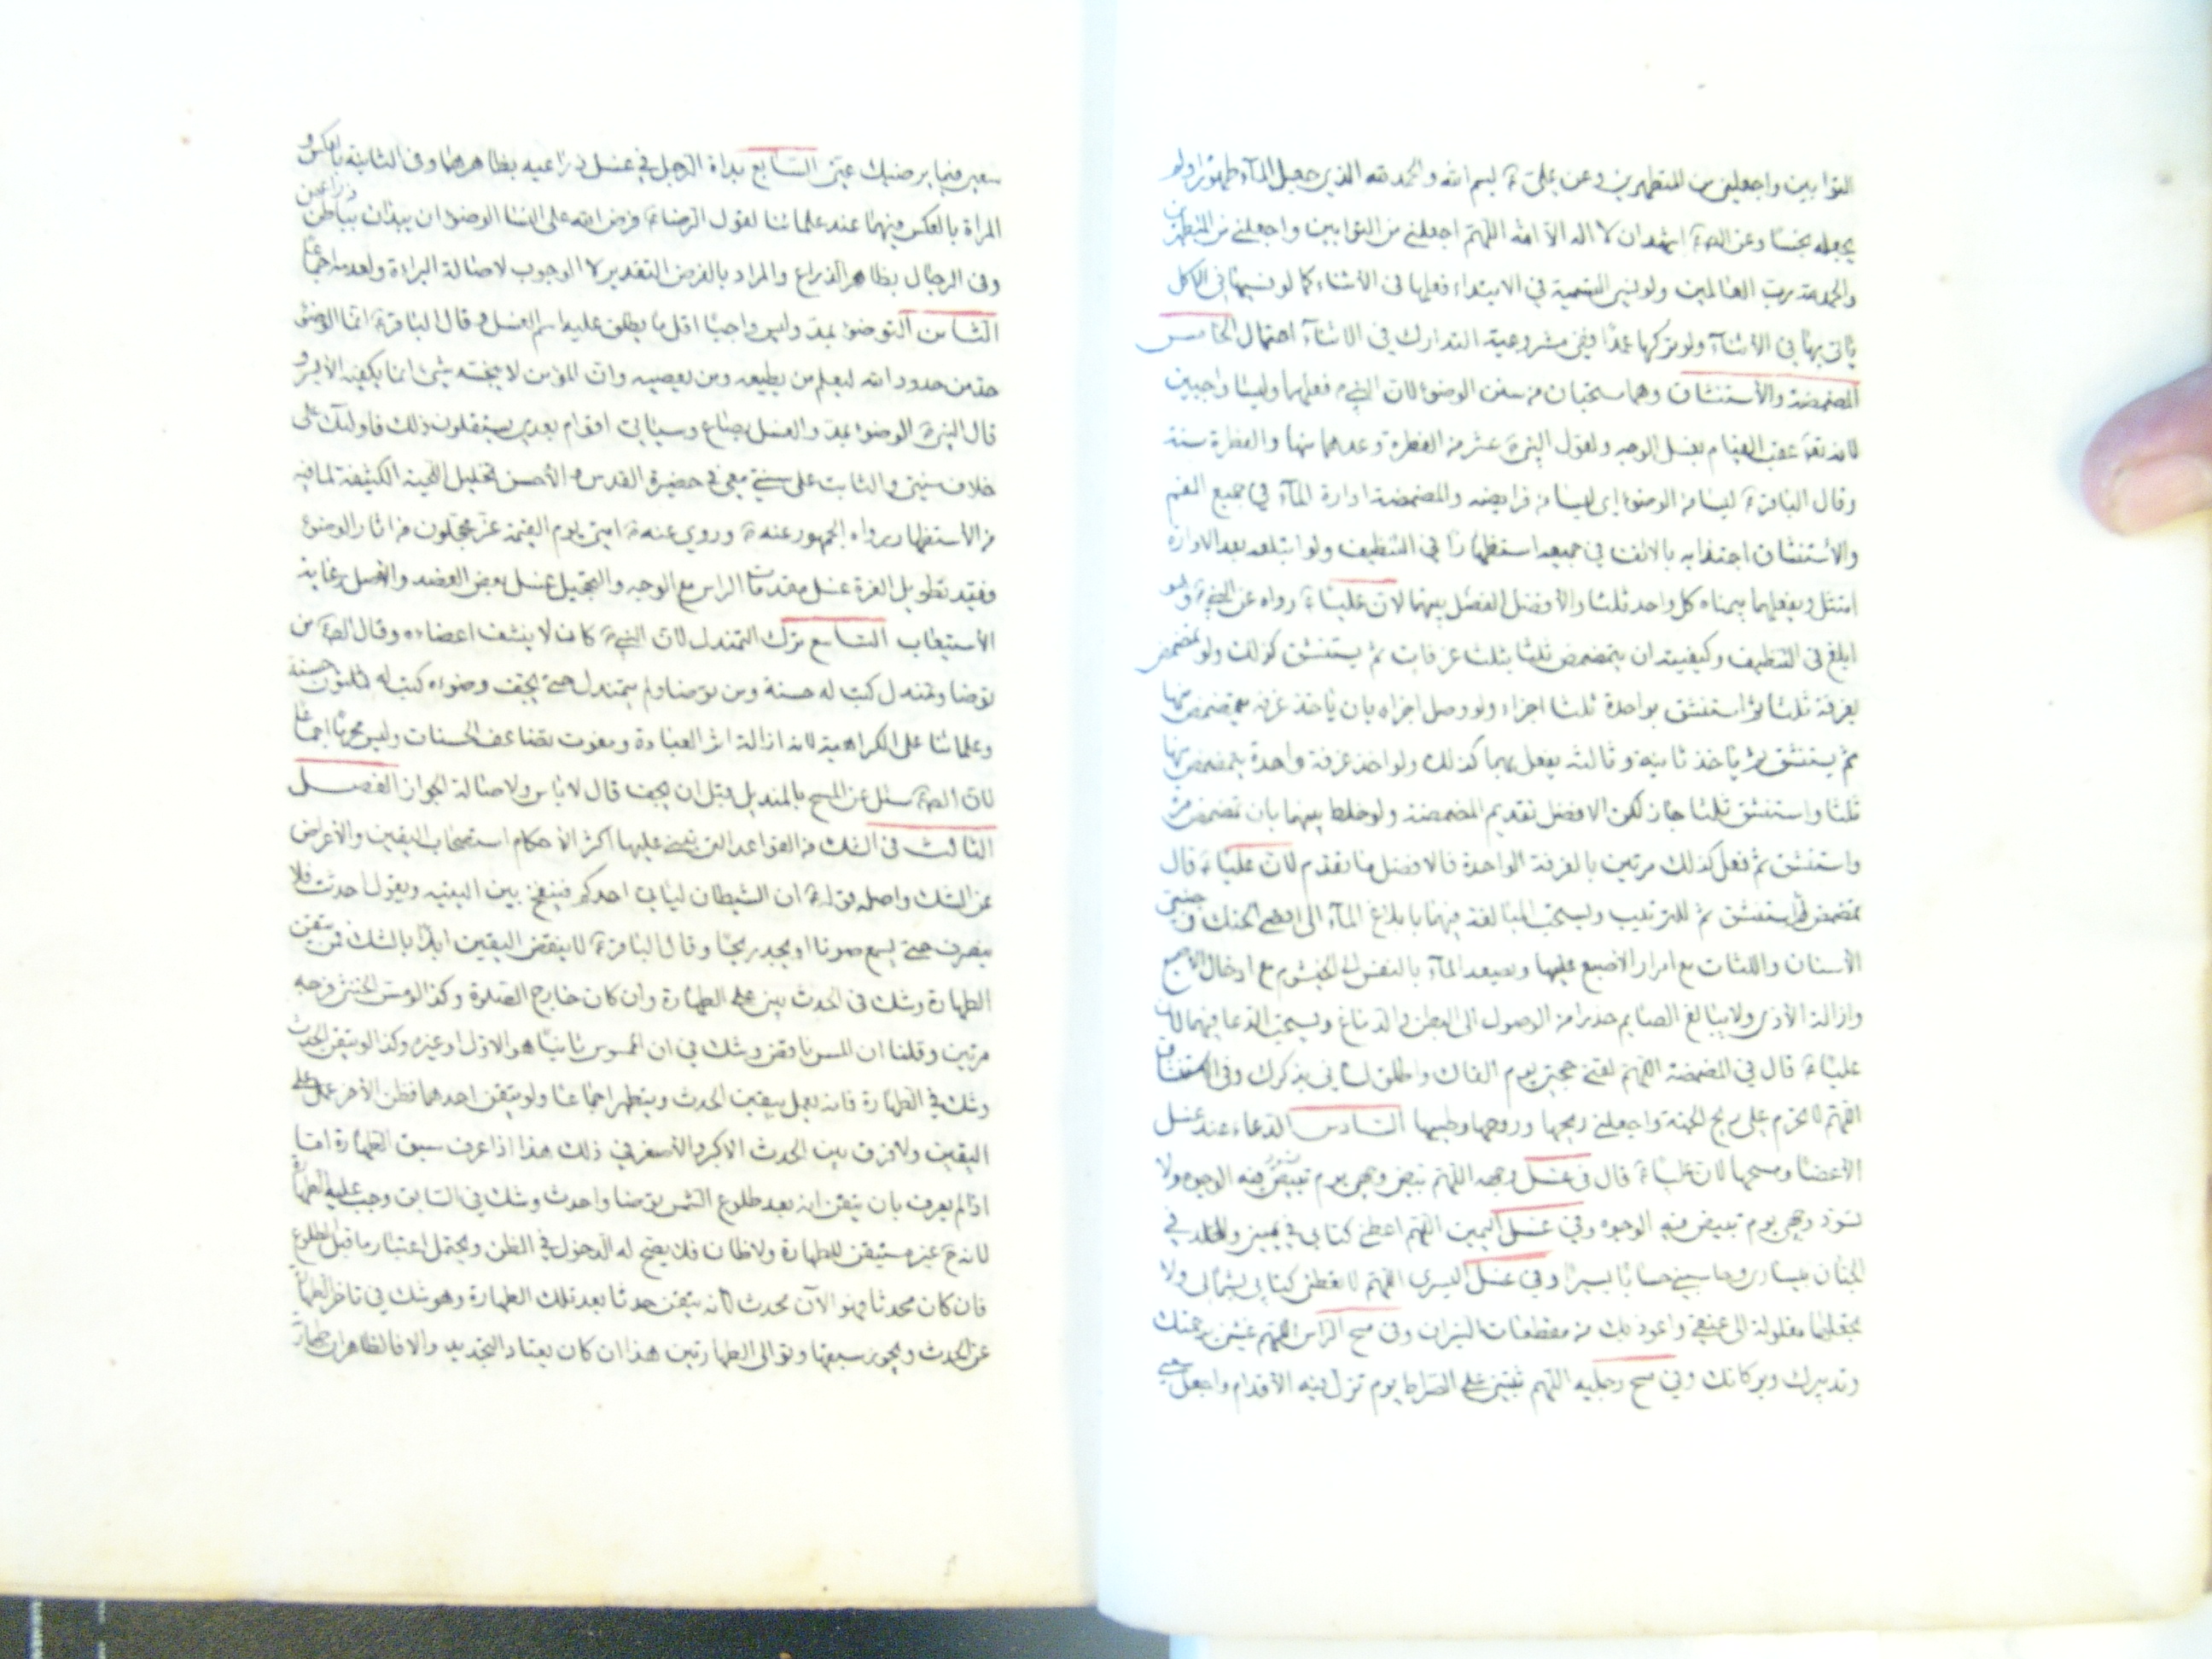 التوابين واجعلني من المتطهرين وعن علي ع بسم الله والحمد لله الذي جعل المآء طهورا ولم
يجعله نجسا وعن الص ع اشهد ان لا اله الا الله اللهم اجعلني من التوابين واجعلني من المتطهرين
والحمد لله رب العالمين ولو نسي التسمية في الابتداء فعلها في الأثناء كما لو نسيها في الاكل
يأتي بها في الأثنآء ولو تركها عمدا ففي مشروعية التدارك في الاثنآء احتمال الخامس
المضمضة والأستنشاق وهما مستحبان من سنن الوضوء لان النبي ص فعلهما وليسا واجبين
لانه تع عقب القيام بغسل الوجه ولقول النبي ص عشر من الفطرة وعدهما منها والفطرة سنة
وقال الباقر ع ليسا من الوضوء اي ليسا من فرايضه والمضمضة ادارة المآء في جميع الفم
والأستنشاق اجتذابه بالانف في جميعه استظهارا في التنظيف ولو ابتلعه بعد الادارة
امتثل ويفعلهما بيمناه كل واحد ثلثا والأفضل الفصل بينهما لان عليا ع رواه عن النبي ص ولانه
ابلغ في التنظيف وكيفيته ان يتمضمض ثلثا بثلث غرفات ثم يستنشق كذلك ولو تمضمض
بغرفة ثلثا ثم استنشق بواحدة ثلثا اجزاء ولو وصل اجزاه بان ياخذ غرفة يتمضمض منها
ثم يستنشق ثم ياخذ ثانية وثالثة يفعل بهما كذلك ولو اخذ غرفة واحدة يتمضمض منها
ثلثا واستنشق ثلثا جاز لكن الافضل تقديم المضمضة ولو خلط بينهما بان تمضمض مرة
واستنشق ثم فعل كذلك مرتين بالغرفة الواحدة فالافضل ما تقدم لان عليا ع قال
تمضمض ثم استنشق ثم للترتيب ويستحب المبالغة فيهما بابلاغ المآء الى اقصى الحنك و جنبتي
الأسنان واللثات مع امرار الأصبع عليها ويصعد المآء بالنفس الى الخيشوم مع ادخال الاصبع
وازالة الأذى ولا يبالغ الصايم حذرا من الوصول الى البطن والدماغ ويستحب الدعا فيهما لان
عليا ع قال في المضمضة اللهم لقني حجتي يوم القاك واطلق لساني بذكرك وفي الاستنشاق
اللهم لا تحرم علي ريح الجنة واجعلني ريحها وروحها وطيبها السادس الدعاء عند غسل
الأعضا ومسحها لان عليا ع قال في غسل وجهه اللهم بيض وجهي يوم تبيض فيه الوجوه ولا
تسود وجهي يوم تبيض فيه الوجوه وفي غسل اليمين اللهم اعطني كتابي في يميني والخلد في
الجنان بيساري وحاسبني حسابا يسيرا وفي غسل اليسرى اللهم لا تعطني كتابي بشمالي ولا
تجعلها مغلولة الى عنقي واعوذ بك من مقطعات النيران وفي مسح الراس اللهم غشني رحمتك
وبركاتك وفي مسح رجليه اللهم ثبتني على الصراط يوم تزل فيه الأقدام واجعل
سعيي فيما يرضيك عني السابع بداة الرجل في غسل ذراعيه بظاهرهما وفي الثانية بالعكس و
المراة بالعكس فيهما عند علمائنا لقول الرضا ع فرض الله على النسا الوضوء ان يبدان بباطن ذراعهن
وفي الرجال بظاهر الذراع والمراد بالفرض التقدير لا الوجوب لاصالة البراءة ولعدمه اجماعا
الثامن التوضوء بمد وليس واجبا اقل ما يطلق عليه اسم الغسل وقال الباقر ع انما الوضوء
حد من حدود الله ليعلم من يطيعه ومن يعصيه وان المؤمن لا ينجسه شئ انما يكفيه الأيسر و
قال النبي ص الوضوء بمد والغسل بصاع وسياتي اقوام بعدي يستقلون ذلك فاولئك على
خلاف سنتي والثابت على سنتي معي في حضيرة القدس و الأحسن تخليل اللحية الكثيفة لما فيه
من الأستظهار رواه الجمهور عنه ص وروي عنه ص امتي يوم القيمة غر محجلون من اثار الوضوء
ففيه تطويل الغرة غسل مقدمات الراس مع الوجه والتحجيل غسل بعض العضد والأصل رعاية
الأستيعاب التاسع ترك التمندل لان النبي ص كان لا ينشف اعضاءه وقال الص ع من
توضا وتمندل كتب له حسنة ومن توضا ولم يتمندل حتى يجف وضوءه كتب له ثلثون حسنة
وعلمائنا على الكراهية لانه ازالة اثر العبادة ومفوت تضاعف الحسنات وليس محرما اجماعا
لان الص ع سئل عن المسح بالمنديل قبل ان يجف قال لا باس ولاصالة الجواز الفصل
الثالث في الشك من القواعد التي تبنى عليها اكثر الأحكام استصحاب اليقين والأعراض
عن الشك واصله قوله ص ان الشيطان لياتي احدكم فينفخ بين اليتيه ويقول احدثت فلا
ينصرف حتى يسمع صوتا او يجد ريحا وقال الباقر ع لا ينقض اليقين ابدا بالشك فمن تيقن
الطهارة وشك في الحدث بنى على الطهارة وان كان خارج الصلوة وكذا لو مس الخنثى فرجه
مرتين وقلنا ان المس ناقض وشك في ان الممسوس ثانيا هو الاول او غيره وكذا لو تيقن الحدث
وشك في الطهارة فانه يعمل بيقين الحدث ويتطهر اجماعا ولو تيقن احدهما فظن الأخر عمل على
اليقين ولا فرق بين الحدث الاكبر والأصغر في ذلك هذا اذا عرف سبق الطهارة اما
اذا لم يعرف بان تيقن انه بعد طلوع الشمس توضا واحدث وشك في السابق وجب عليه الطهارة
لانه ح غير مستيقن للطهارة ولا ظان فلا يصح له الدخول في الظن ويحتمل اعتبار ما قبل الطلوع
فان كان محدثا فهو الآن محدث لانه تيقن حدثا بعد تلك الطهارة وهو شك في تاخر الطهارة
عن الحدث ويجوز سبقها وتوالى الطهارتين هذا ان كان يعتاد التجديد والا فالظاهر ان طهارته